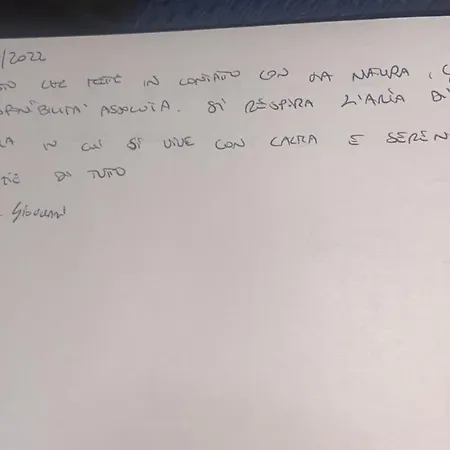 /2022
CHE METTE IN CONTATTO CON LA NATURA,
ASSOLUTA. SI RESPIRA L'ARIA DI
IN CUI SI VIVE CON CALMA E SEREN
DI TUTTO
Giovanni